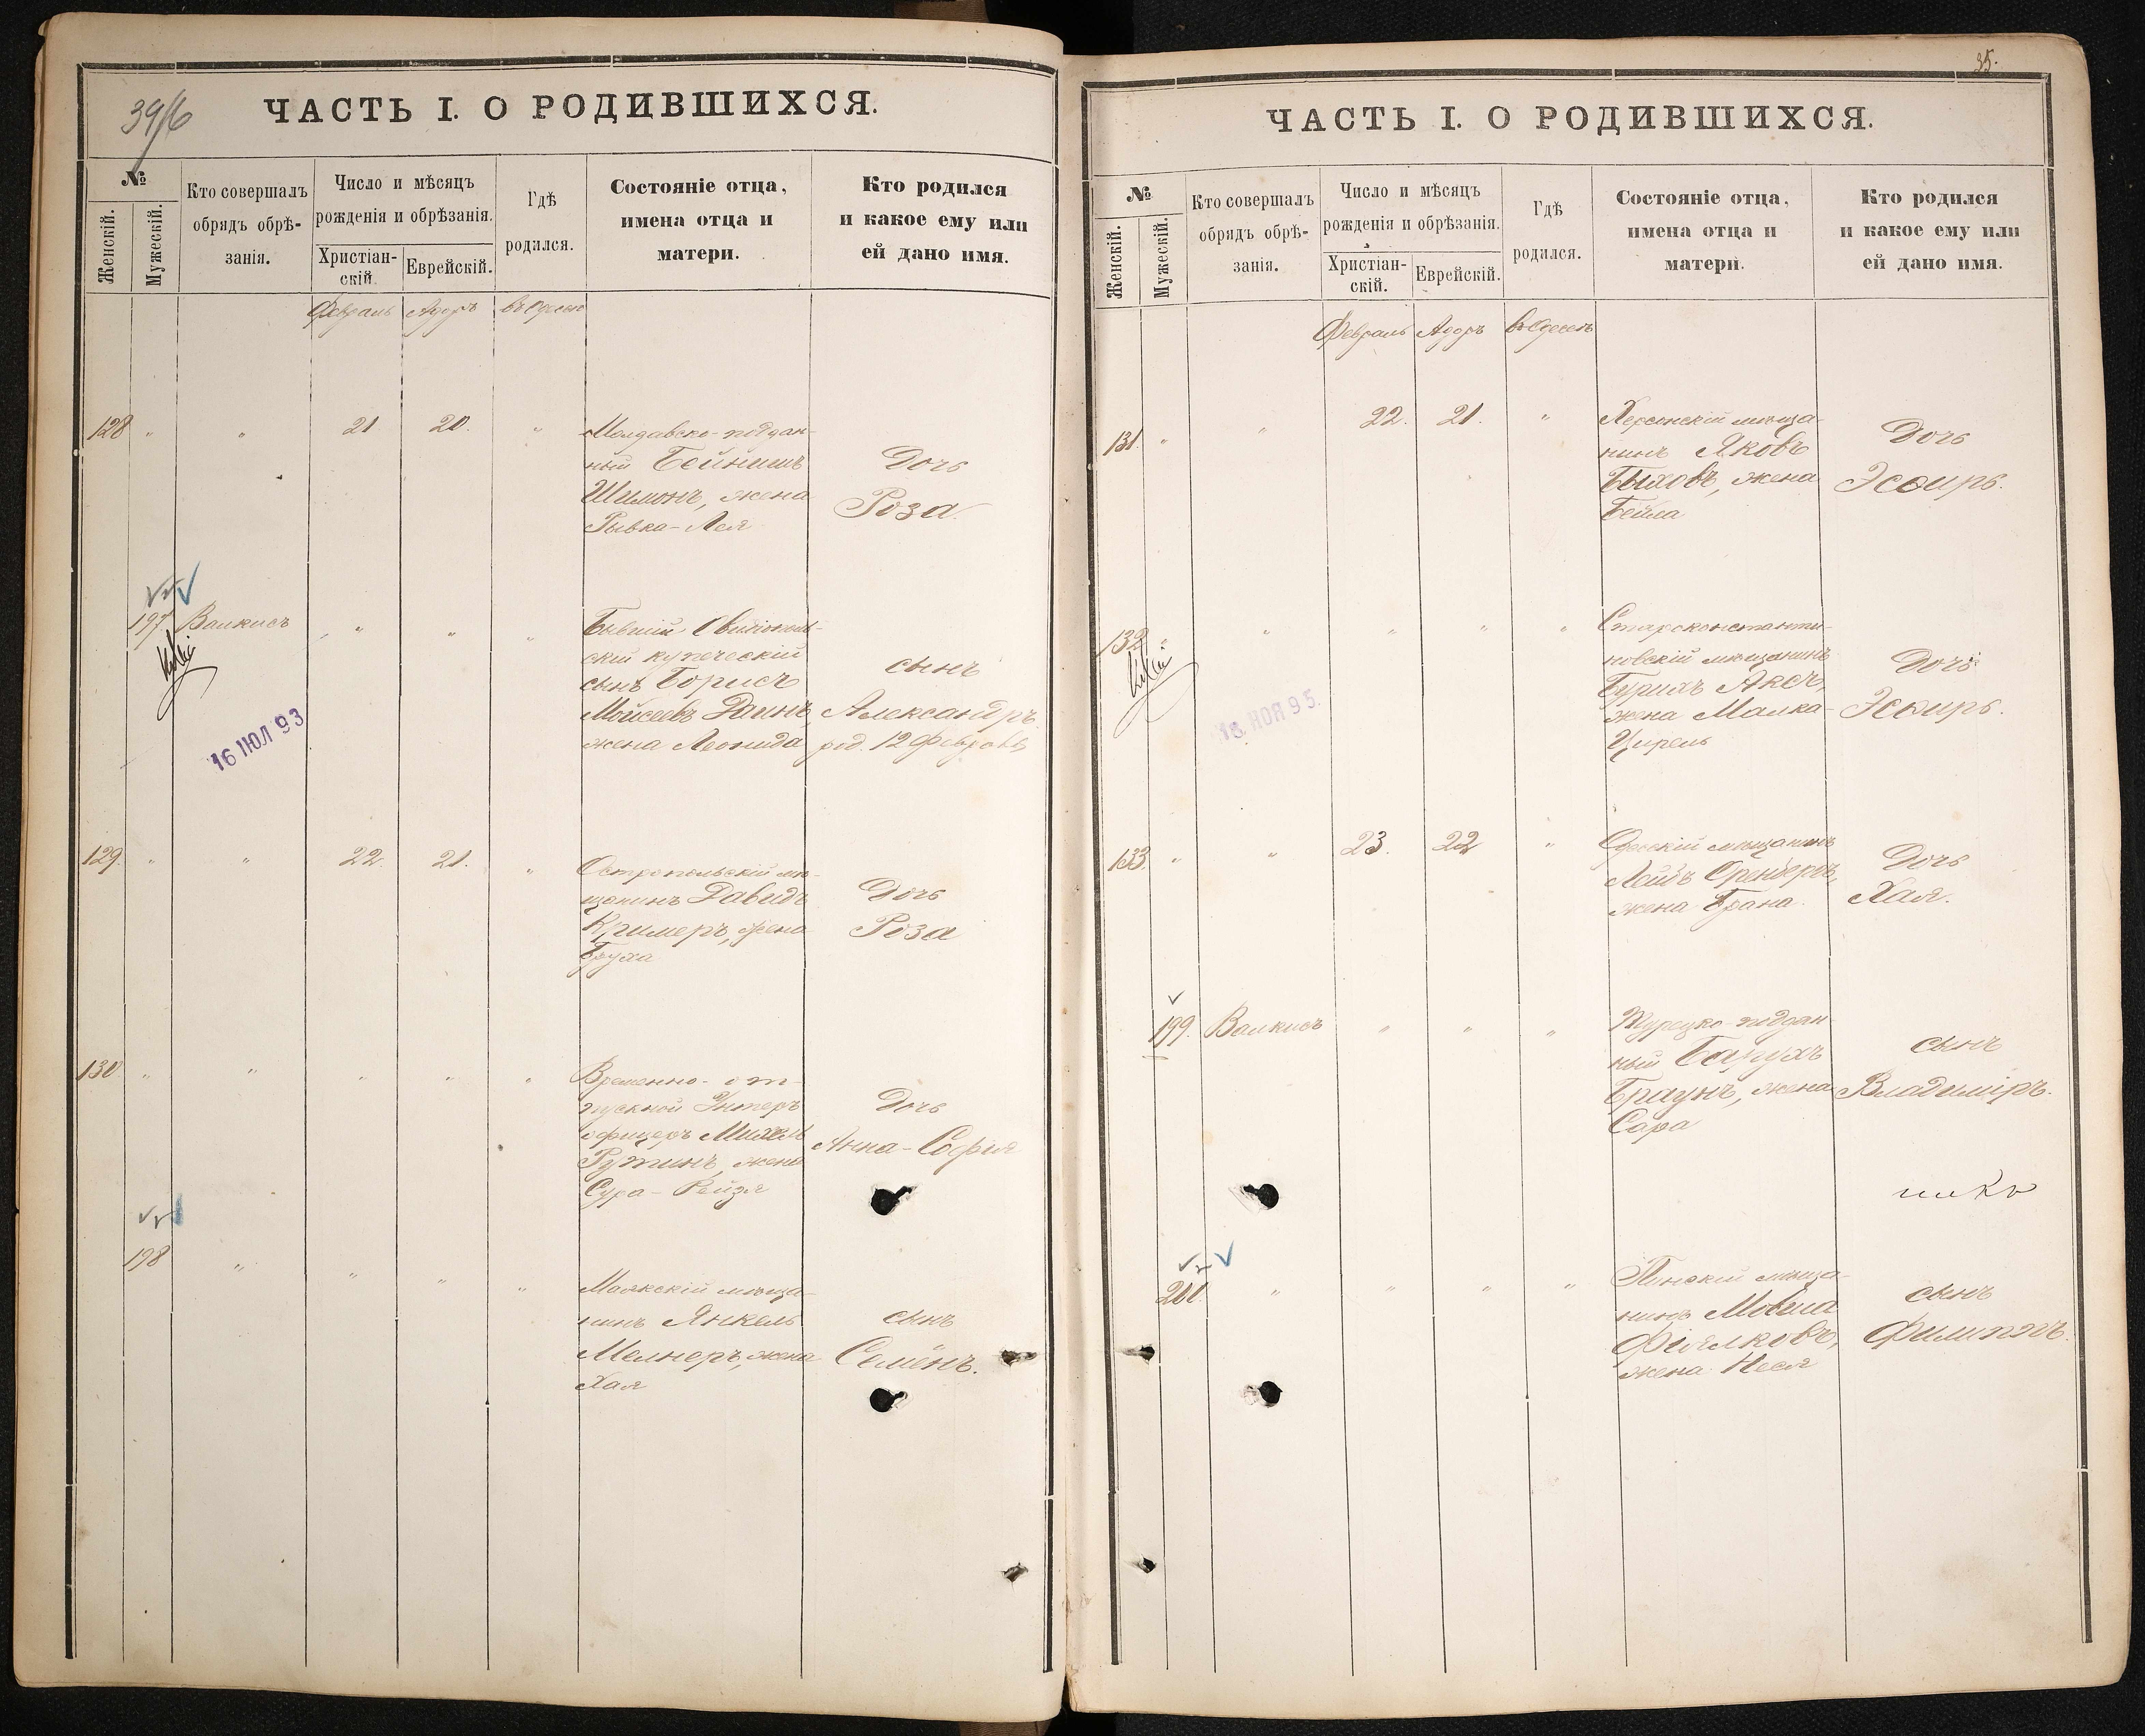 39/6
ЧАСТЬ I. О РОДИВШИХСЯ.
№
Женскій.
Мужескій.
Кто совершалъ
обрядъ обрѣ-
занія.
Число и мѣсяцъ
рожденія и обрѣзанія.
Христіан-
скій.
Еврейскій.
Гдѣ
родился.
Состояніе отца,
имена отца и
матери.
Кто родился
и какое ему или
ей дано имя.
Февраль Адоръ въ Одессѣ
128 " " 21 20. "
Молдавско-поддан-
ный Бейнишъ
Шимонъ, жена
Рывка-Лея
Дочь
Роза
197 Валкисъ " " "
Бывшій Овидіополь-
скій купеческій
сынъ Борисъ
Мойсеевъ Даинъ,
жена Леонида
сынъ
Александръ
род. 12 Февраля
16 ІЮЛ 93
129. " " 22. 21. "
Остропольскій мѣ-
щанинъ Давидъ
Кримеръ, жена
Бруха
Дочь
Роза
130 " " " " "
Временно-от-
пускной Унтеръ
офицеръ Михель
Рутинъ, жена
Сура-Рейзя
Дочь
Анна-Софія
198 " " " "
Маякскій мѣща-
нинъ Янкель
Мелнеръ, жена
Хая
сынъ
Семёнъ.
35.
ЧАСТЬ I. О РОДИВШИХСЯ.
№
Женскій.
Мужескій.
Кто совершалъ
обрядъ обрѣ-
занія.
Число и мѣсяцъ
рожденія и обрѣзанія.
Христіан-
скій.
Еврейскій.
Гдѣ
родился.
Состояніе отца,
имена отца и
матери.
Кто родился
и какое ему или
ей дано имя.
Февраль Адоръ въ Одессѣ
131. " " 22. 21. "
Херсонскій мѣща-
нинъ Яковъ
Быховъ, жена
Бейла
Дочь
Эсѳирь.
132 " " " " "
Староконстанти-
новскій мѣщанинъ
Бурихъ Аксъ,
жена Малка-
Цирель
Дочь
Эсѳирь.
18 НОЯ 95.
133. " " 23. 22 "
Одесскій мѣщанинъ
жена Брана.
Дочь
Хая.
199. Валкисъ " " "
Турецко-поддан-
ный Барухъ
Браунъ, жена
Сара
сынъ
Владиміръ.
200. " " " "
Пинскій мѣща-
нинъ Мовша
Фіялковъ,
жена Неся
сынъ
Филиппъ.